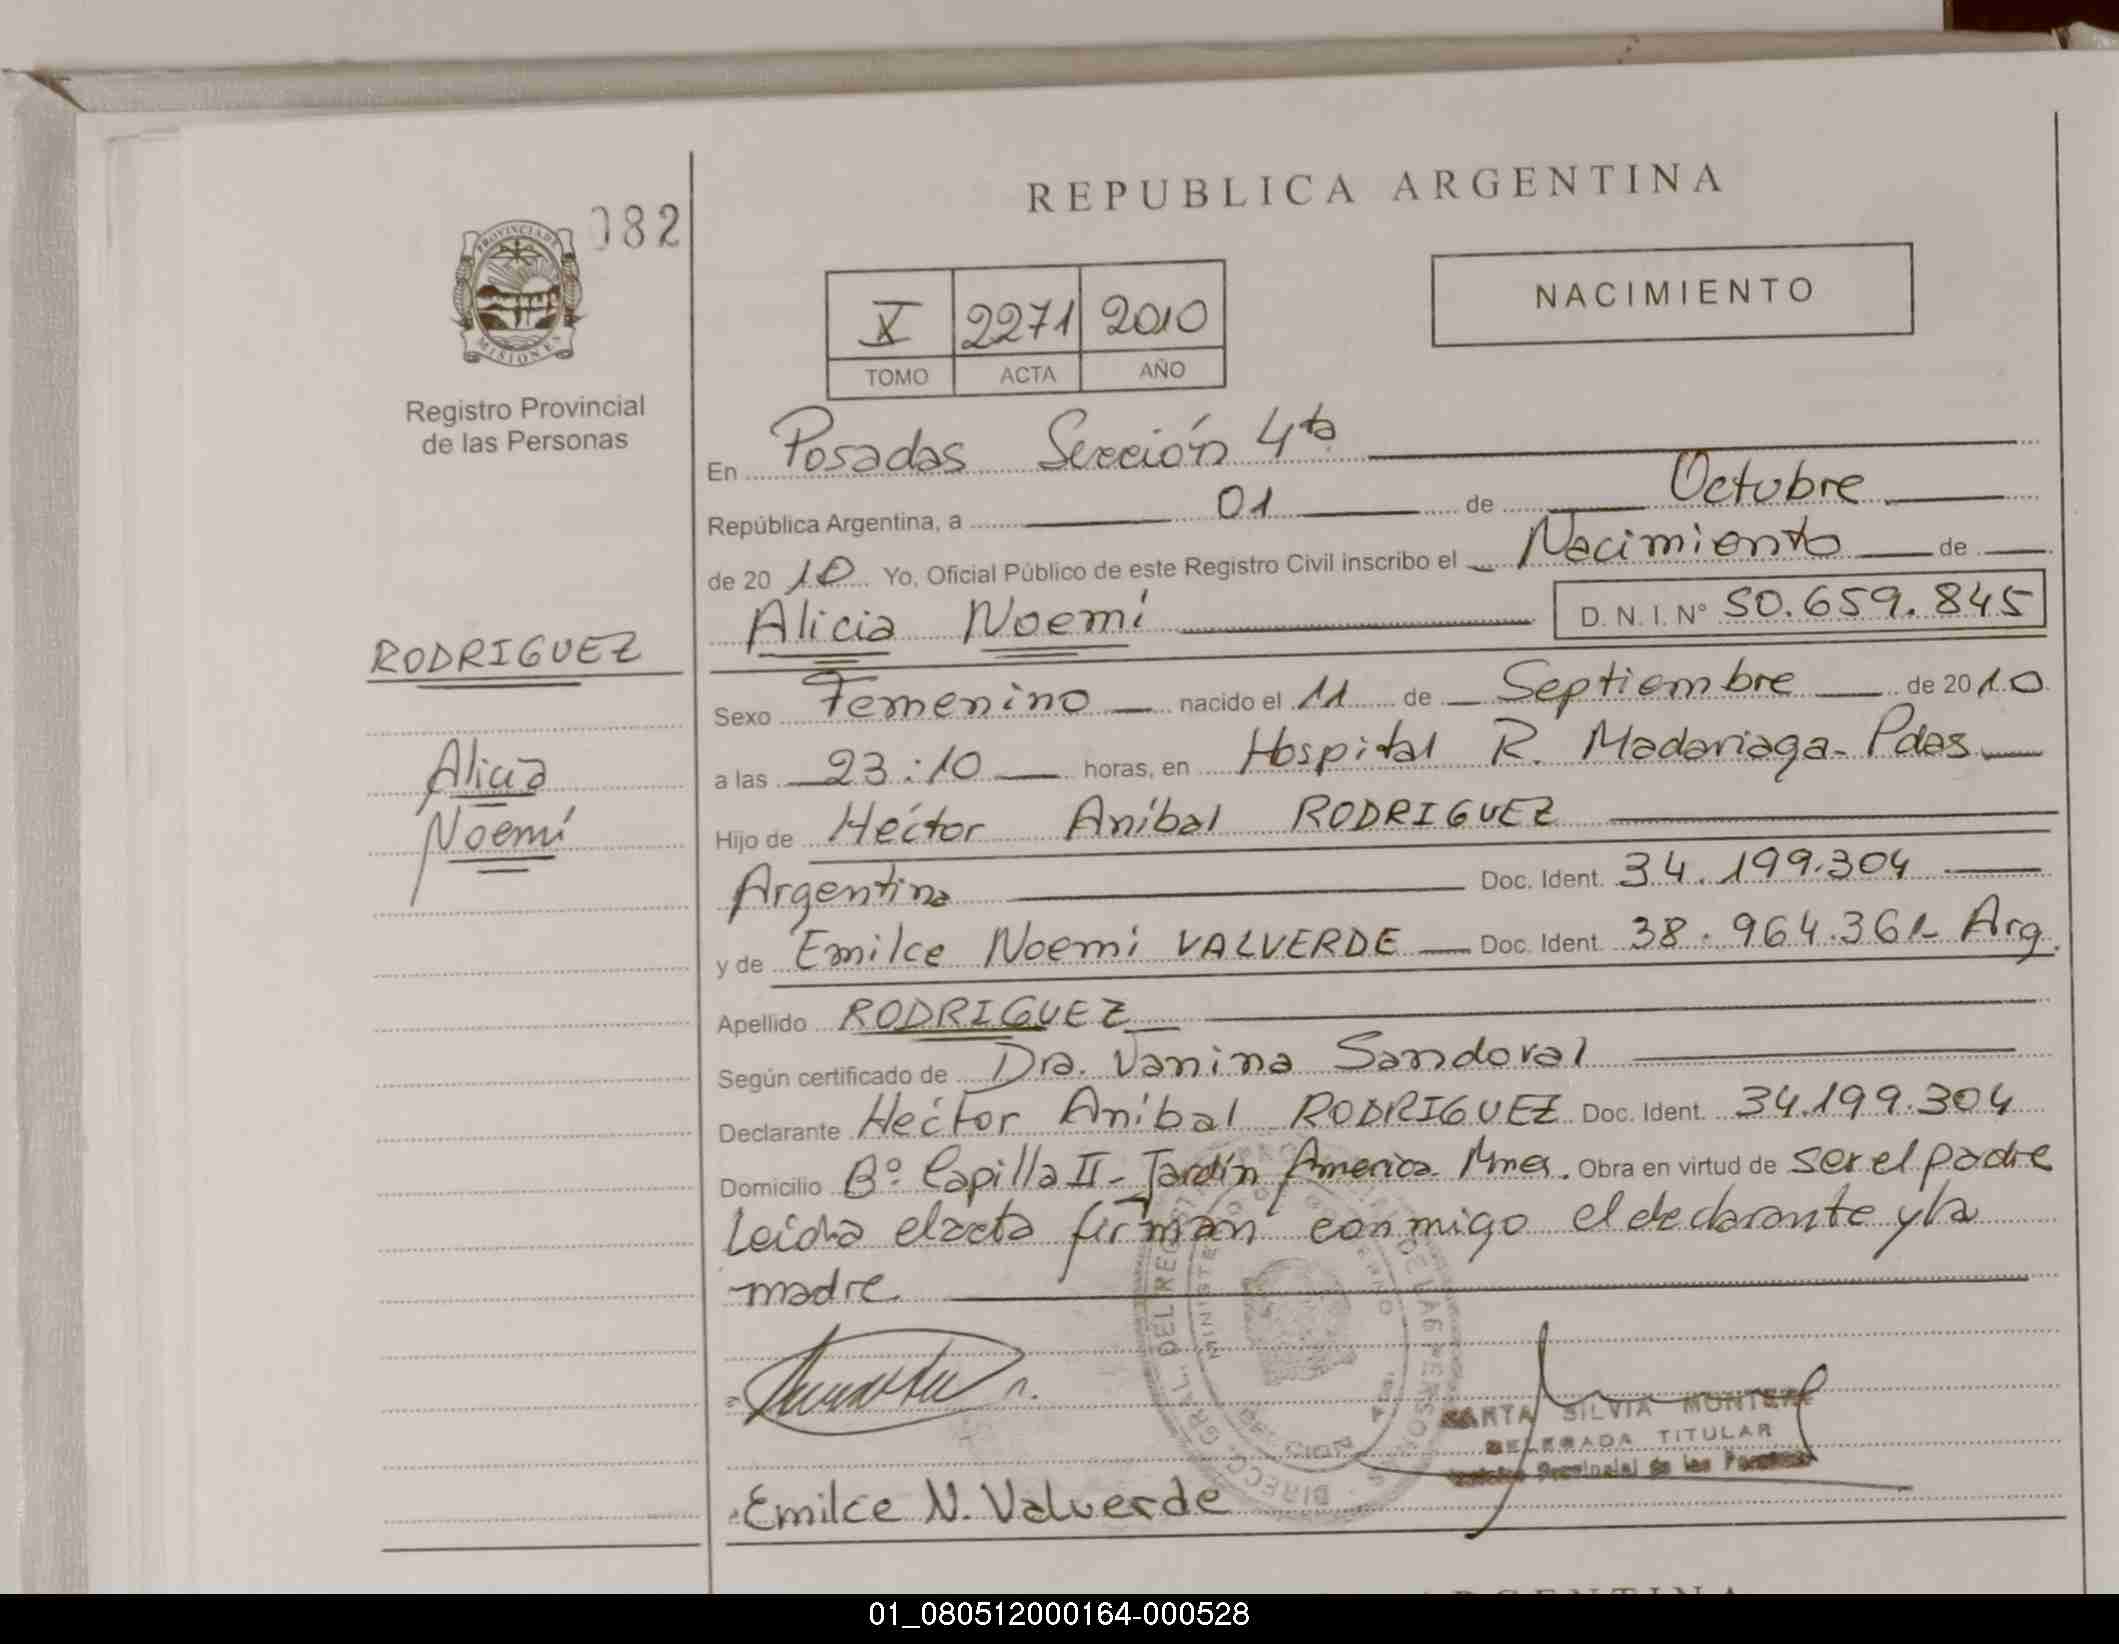 REPUBLICA ARGENTINA
082
PROVINCIA DE
MISIONES
Registro Provincial
de las Personas
NACIMIENTO
X 2271 2010
TOMO ACTA AÑO
En Posadas Sección 4ta
República Argentina, a 01 de Octubre
de 2010 Yo, Oficial Público de este Registro Civil inscribo el Nacimiento de
Alicia Noemí D. N. I. Nº 50.659.845
RODRIGUEZ
Alicia
Noemí
Sexo Femenino nacido el 11 de Septiembre de 2010
a las 23:10 horas, en Hospital R. Madariaga - Pdas
Hijo de Héctor Aníbal RODRIGUEZ
Argentina Doc. Ident. 34.199.304
y de Emilce Noemi VALVERDE Doc. Ident. 38.964.361- Arg.
Apellido RODRIGUEZ
Según certificado de Dra. Vanina Sandoval
Declarante Héctor Aníbal RODRIGUEZ Doc. Ident. 34.199.304
Domicilio Bº Capilla II - Jardín America Mnes. Obra en virtud de ser el padre
Leída el acta firman conmigo el declarante y la
madre.
SILVIA
DELEGADA TITULAR
Provincial de las
Emilce N. Valverde
01_080512000164-000528